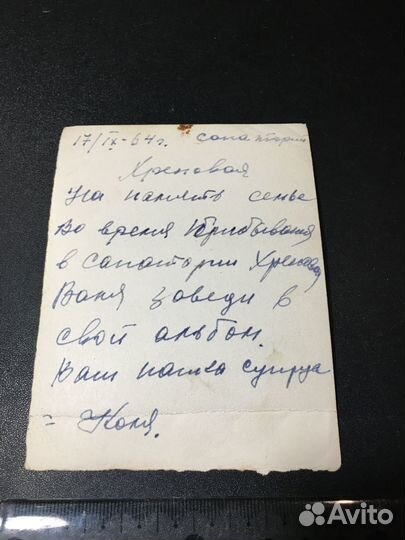 17/IX-64г. санаторий
Хреновая
На память семье
Во время прибывания
в санатории Хреновая
Ваня заведи в
свой альбом.
Ваш папка супруг
= Коля.
Avito